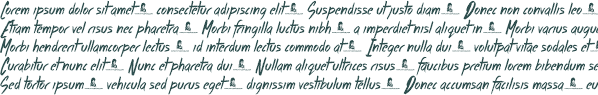 Lorem ipsum dolor sit amet consectetur adipiscing elit Suspendisse ut justo diam Donec non convallis leo
Etiam tempor vel risus nec pharetra Morbi fringilla luctus nibh a imperdiet nisl aliquet in Morbi varius augue
Morbi hendrerit ullamcorper lectus id interdum lectus commodo at Integer nulla dui volutpat vitae sodales et
Curabitur et nunc elit Nunc et pharetra dui Nullam aliquet ultrices risus faucibus pretium lorem bibendum se
Sed tortor ipsum vehicula sed purus eget dignissim vestibulum tellus Donec accumsan facilisis massa eu